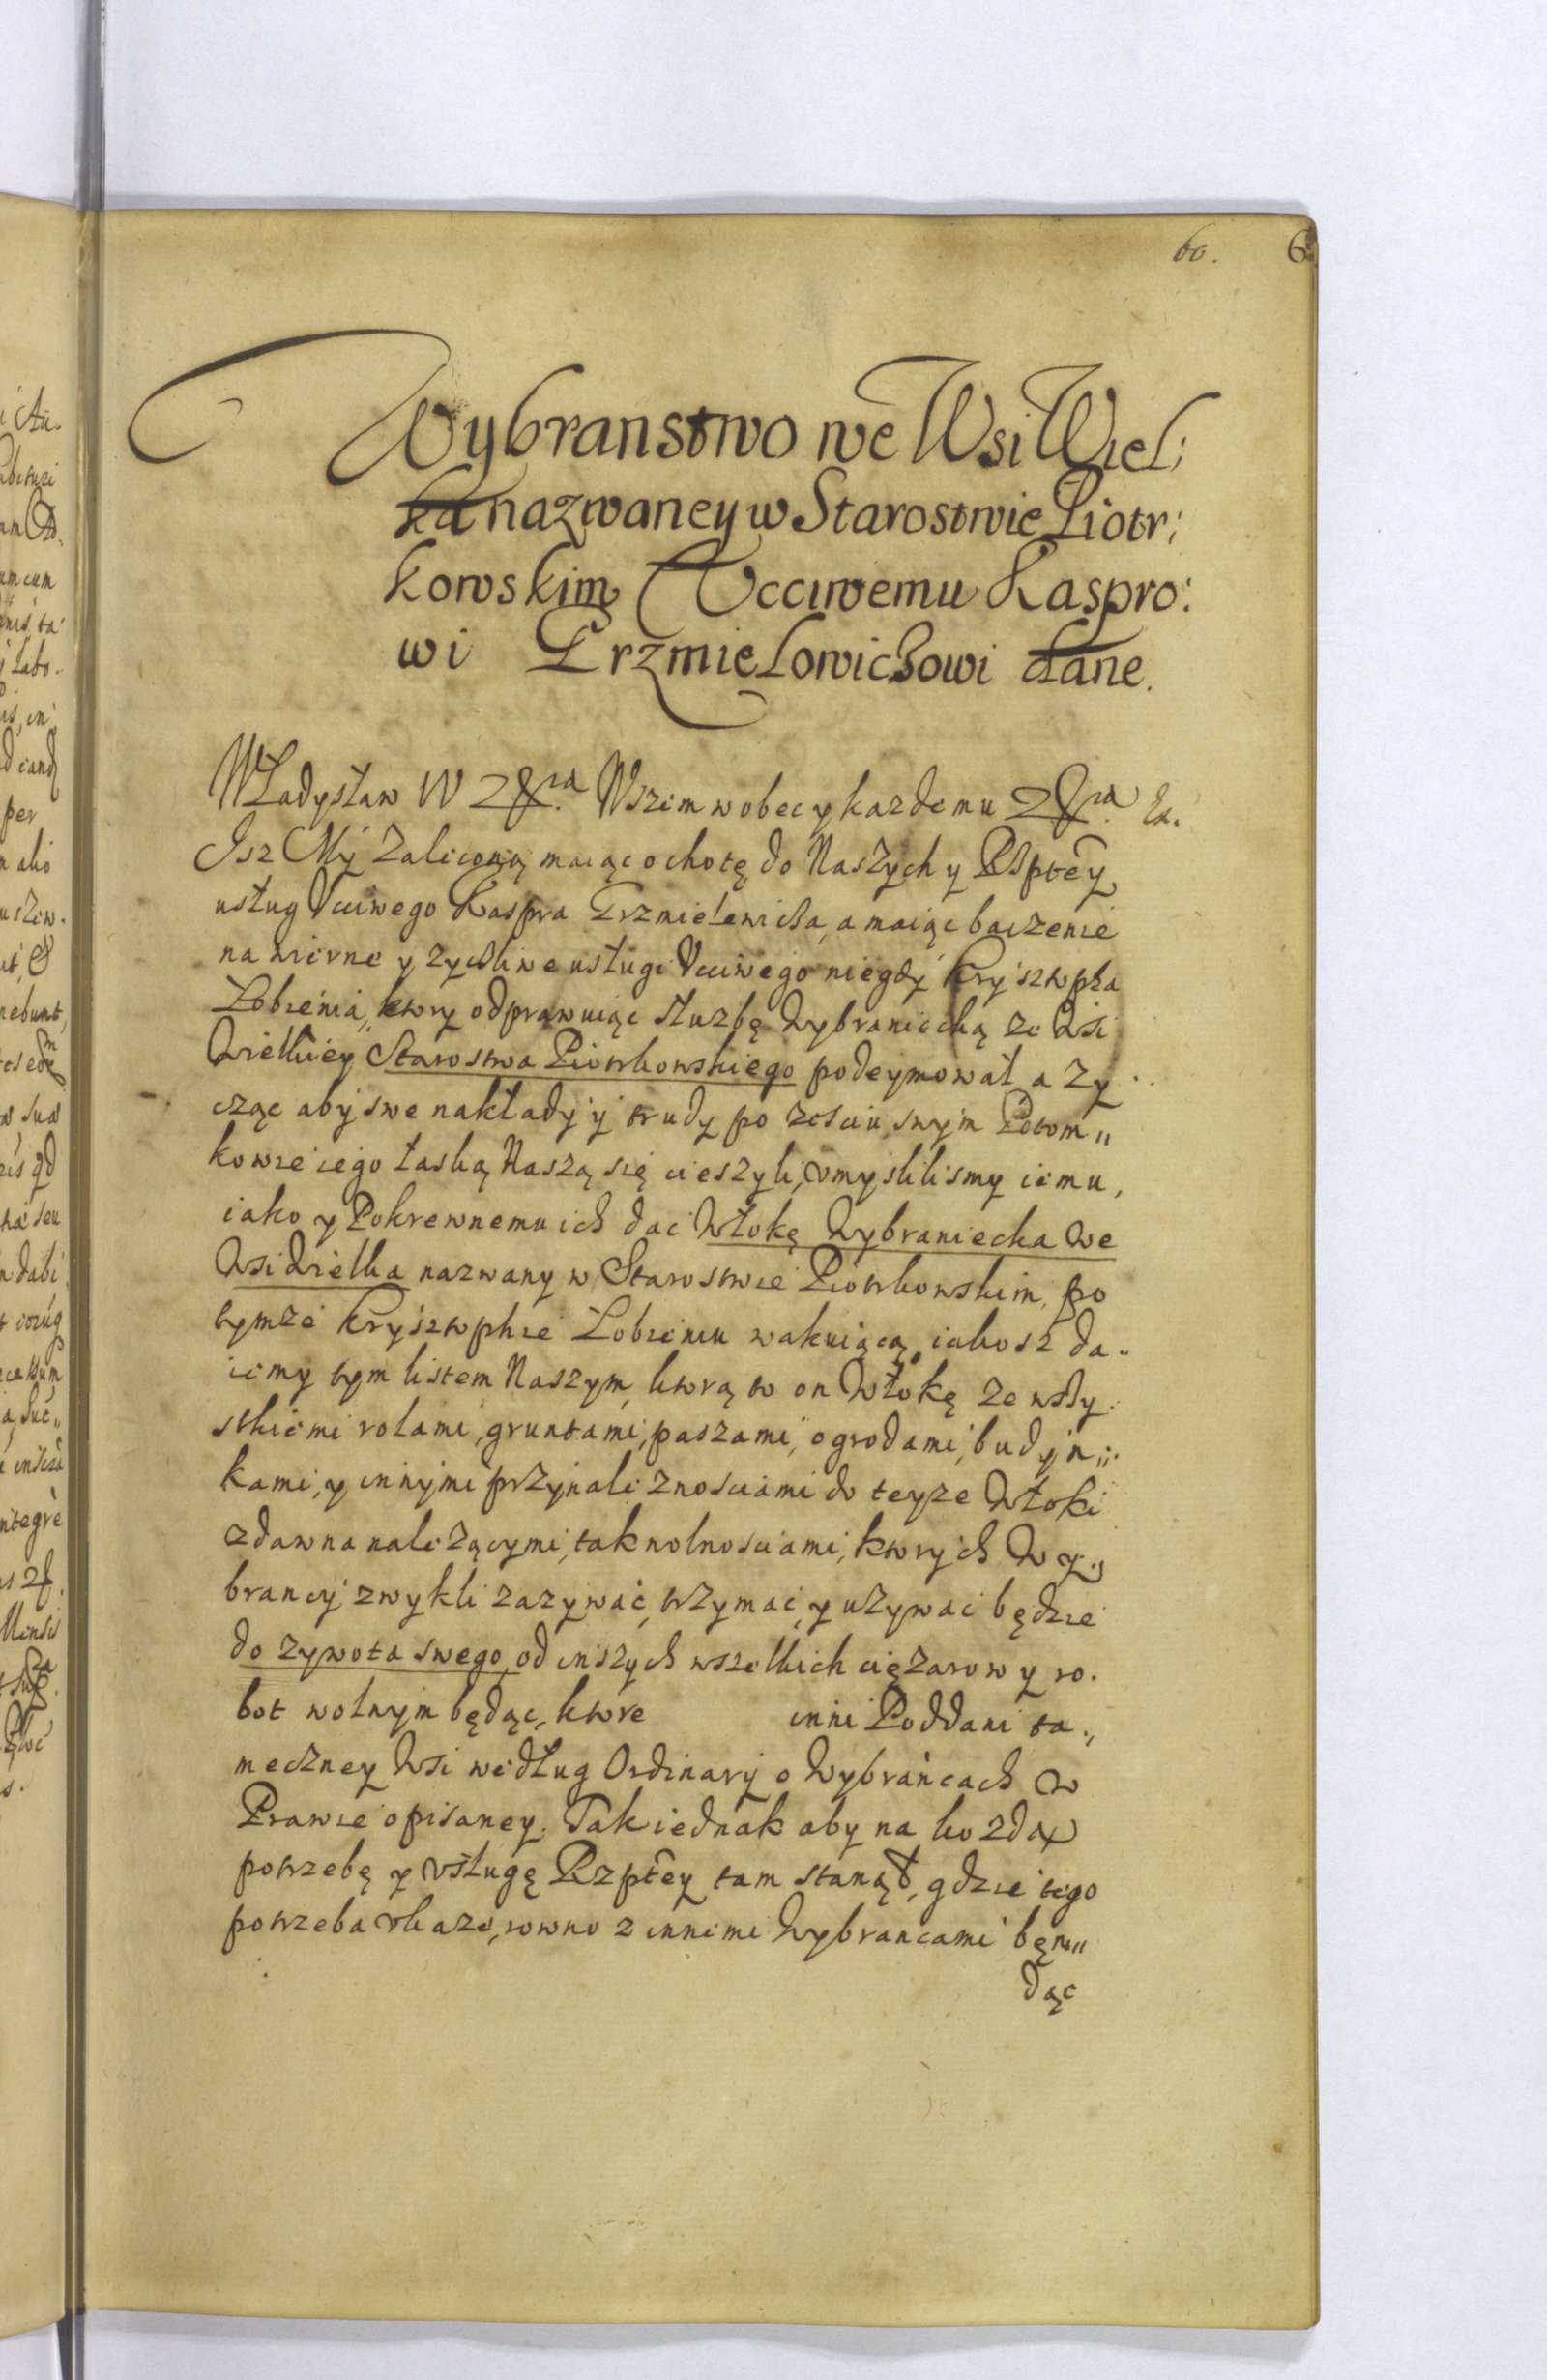 60.
Wybranstwo we Wsi Wiel;
ka nazwaney w Starostwie Piotr;
kowskim Uccıwemu Kaspro:
wi Trzmielowichowi dane.
Władysław IV Wszem wobec y kazdemu
Isz My Zaliconą maiąc ochotę do Naszych y Rzptey
usług Vcciwego Kaspra Trzmielewicha, a maiąc baczenie
na wierne y zychliwe usługi Vcciwego niegdy Krysztopha
Łobzenia, ktory odprawuiąc służbę Wybraniecką ze Wsi
Wielkiey Starostwa Piotrkowskiego podeymował a zy
cząc aby swe nakłady y trudy po zesciu swym Potom„
kowie iego łaską Naszą się cieszyli, vmyslilismy iemu,
iako y Pokrewnemu ich dac Włokę Wybraniecka we
Wsi Wielka nazwany w Starostwie Piotrkowskim, po
tymze Krysztophie Łobzeniu wakuiącą, iakosz da„
iemy tym listem Naszym, ktorą to on Włokę ze wszy
stkiemi rolami, gruntami, paszami, ogrodami, budyn„
kami, y innymi przynaleznosciami do teyze Włoki
zdawna należącymi, tak wolnosciami, ktorych Wy„
brancy zwykli zazywać, trzymac, y uzywac będzie
do zywota swego, od inszych wszelkich ciężarow y ro.
bot wolnym będąc, ktore inni Poddani ta„
meczney Wsi według Ordinarij o Wybrańcach w
Prawie opisaney. Tak iednak aby na kozdą
potrzebę y vsługę Rzptey tam stanął, gdzie tego
potrzeba vkaze, rowno z innemi Wybrancami bęn„
dąc